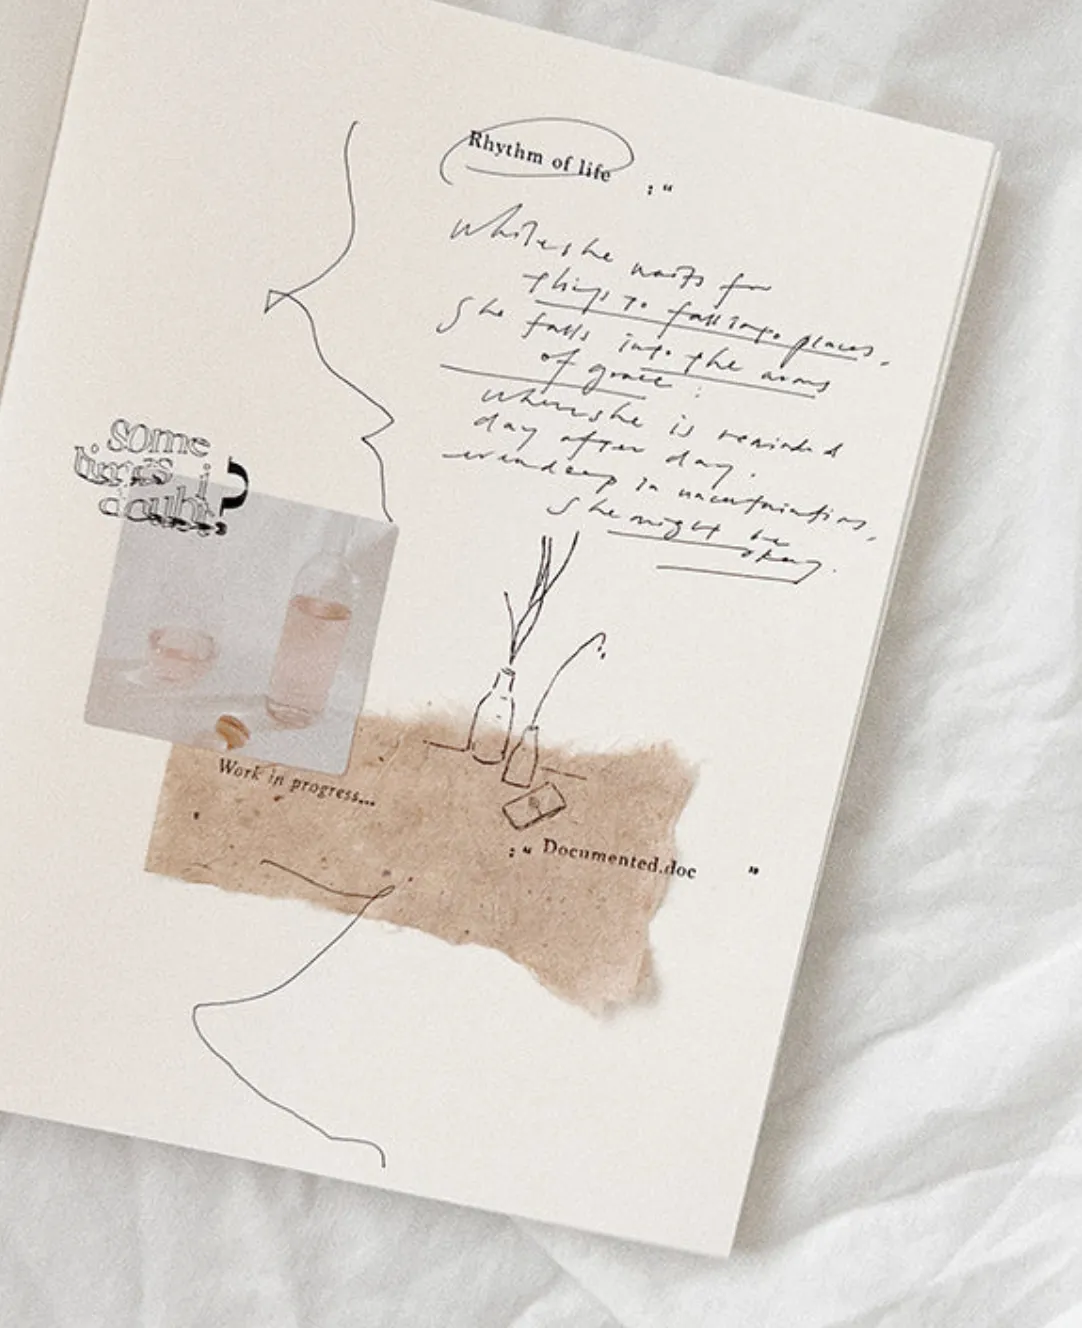 Rhythm of life
: "
while she waits for
things to fall into places,
She falls into the arms
of grace :
where she is reminded
day after day.
even deep in uncertainties,
She might be
okay.
some
times i
doubt
Work in progress...
: " Documented.doc "